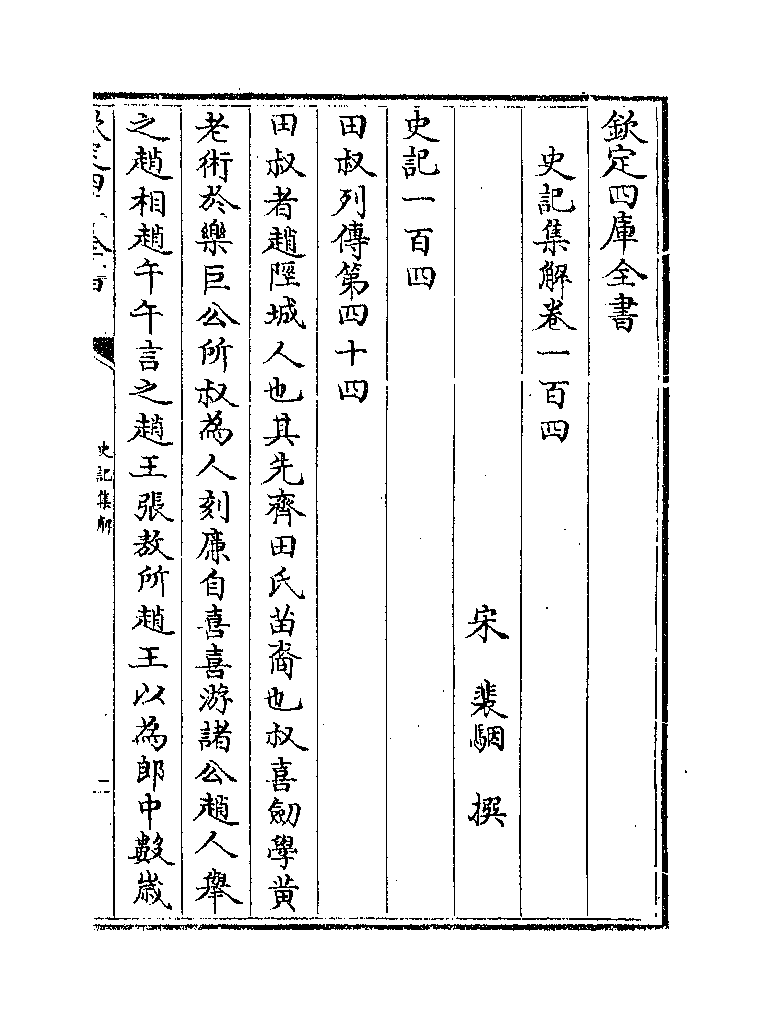 欽定四庫全書
史記集解卷一百四
宋 裴駰 撰
史記一百四
田叔列傳第四十四
田叔者趙陘城人也其先齊田氏苗裔也叔喜劎學黄
老術於樂巨公所叔為人刻廉自喜喜游諸公趙人舉
之趙相趙午午言之趙王張敖所趙王以為郎中數歲
欽定四庫全書
史記集解
一